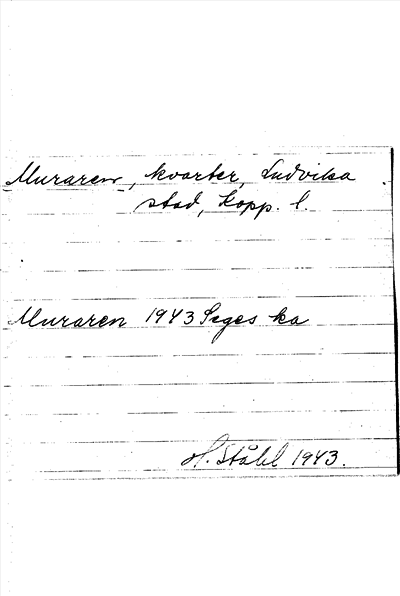 Muraren, kvarter, Ludvika
stad, Kopp. l.
Muraren 1943 Seges ka
H. Ståhl 1943.